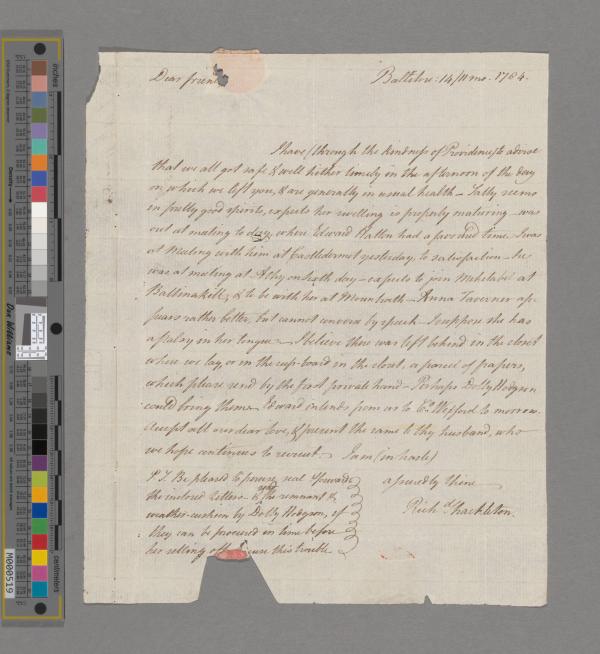 Dear friend
Ballitore: 14/11 mo. 1784.
I have (through the kindness of Providence) to advise
that we all got safe & well hither timely in the afternoon of the day
on which we left you, & are generally in usual health – Sally seems
in pretty good spirits, expects her swelling is properly maturing – was
out at meeting to day, where Edward Hatton had a good time – I was
at Meeting with him at Castledermot yesterday, to satisfaction – he
was at meeting at Athy on sixth day – expects to join Mehetabel at
Ballinakill, & to be with her at Mountrath – Anna Taverner ap-
pears rather better, but cannot converse by speech – I suppose she has
a palsy in her tongue – I believe there was left behind in the closet
where we lay, or in the cup-board in the closet, a parcel of papers,
which please send by the first private hand – Perhaps Dolly Hodgson
could bring them – Edward intends from us to Co. Wexford to morrow.
Accept all our dear love, & present the same to thy husband, who
we hope continues to recruit – I am (in haste)
assuredly thine
Rich.d Shackleton.
P.S. Be pleased to peruse, seal & forward
the inclosed letters – & send the remnant &
weather-cushion by Dolly Hodgson, if
they can be procured in time before
her setting off – Excuse this trouble
inches
centimeters
Don Williams
M000519